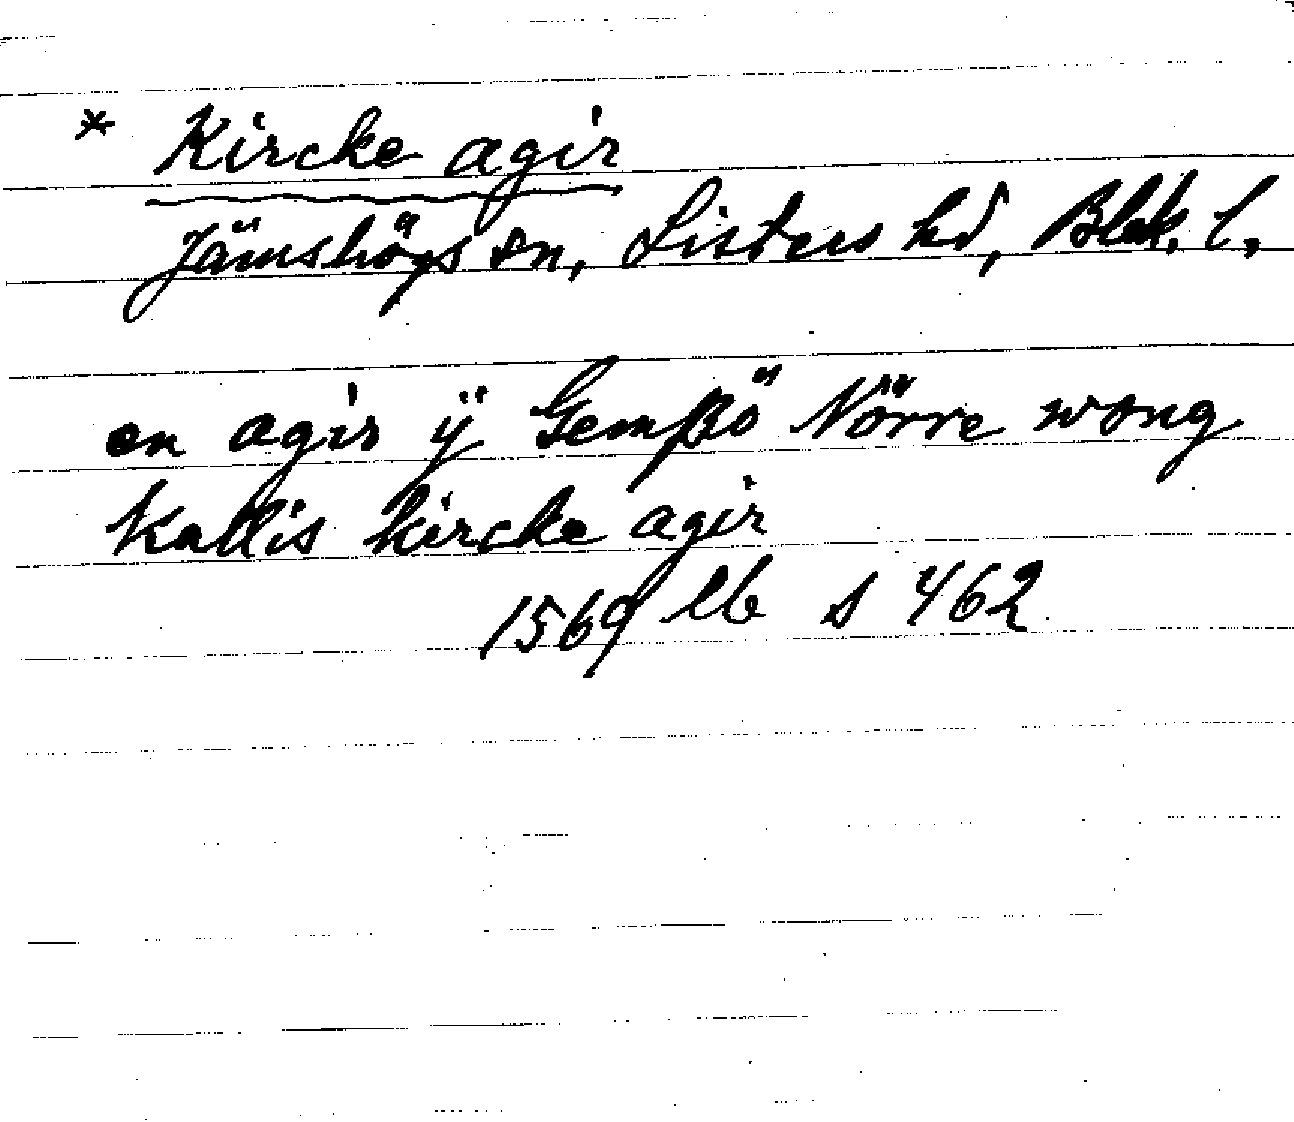 * Kircke agir
Jämshögs sn, Listers hd, Blek. l.
en agir ÿ Gemßö Nörre wong
kallis kircke agir
1569 lb s 462